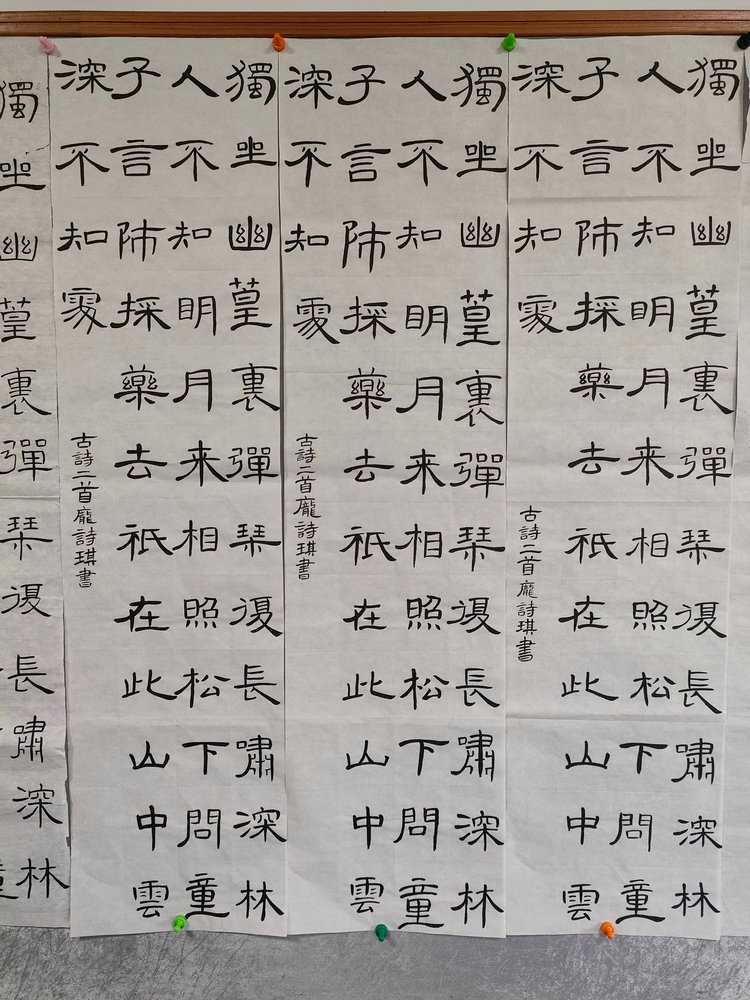 獨坐幽篁裏彈琴復長嘯深林
人不知明月来相照松下問童
子言師採藥去祇在此山中雲
深不知處
古詩二首龐詩琪書
獨坐幽篁裏彈琴復長嘯深林
人不知明月来相照松下問童
子言師採藥去祇在此山中雲
深不知處
古詩二首龐詩琪書
獨坐幽篁裏彈琴復長嘯深林
人不知明月来相照松下問童
子言師採藥去祇在此山中雲
深不知處
古詩二首龐詩琪書
獨坐幽篁裏彈琴復長嘯深林